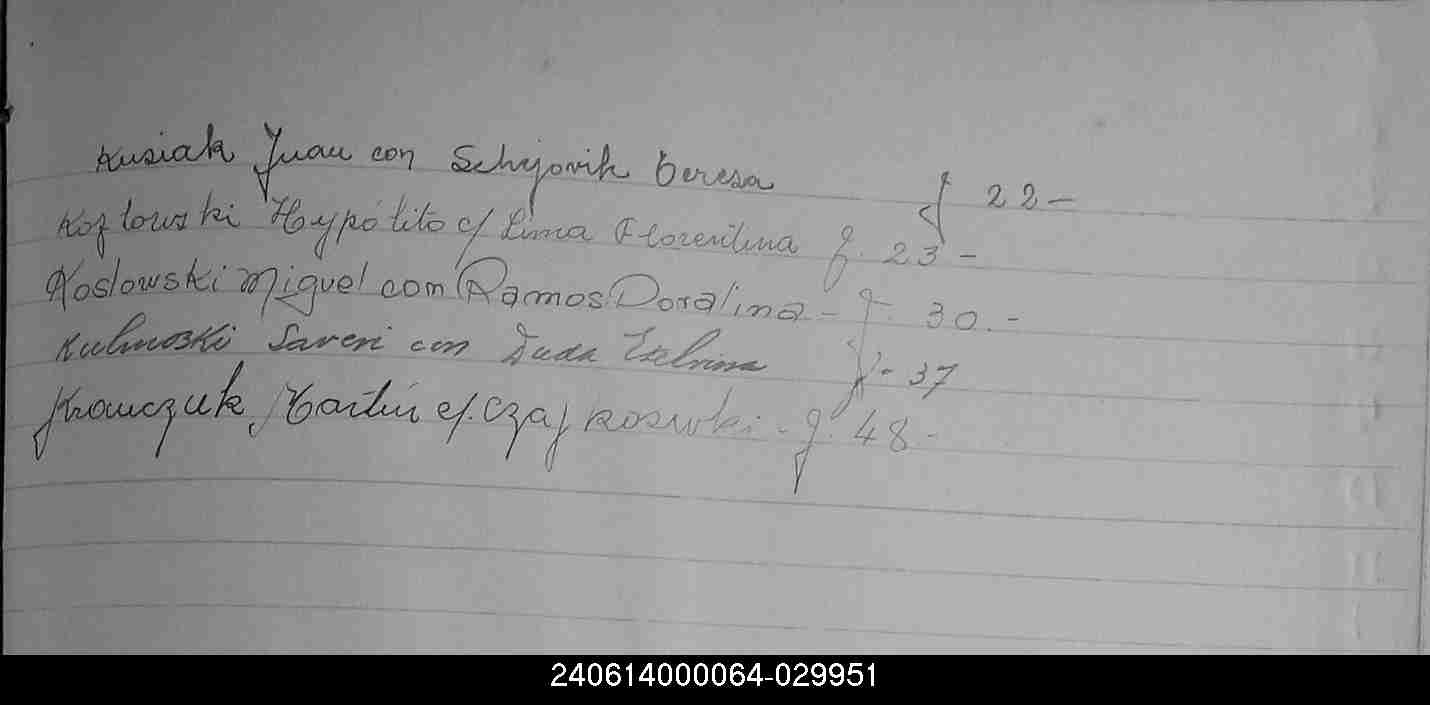 Kusiak Juan con Schyovik Teresa f 22-
Kozlowski Hypólito c/ Lima Florentina f. 23-
Koslowski Miguel com Ramos Doralina - f. 30.-
Kulnoski Saveri con Duda Etelvina f- 37
Krawczuk, Martín c/. Czajkoswki - f. 48-
240614000064-029951